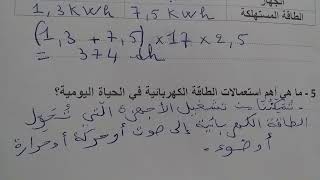 الجهاز
الطاقة المستهلكة 7,5 KWh 1,3 KWh
(1,3 + 7,5) × 17 × 2,5
= 374 dh
5 - ما هي أهم استعمالات الطاقة الكهربائية في الحياة اليومية؟
- تمكننا من تشغيل الأجهزة التي تُحَوِل
الطاقة الكهربائية إلى صوت أو حركة أو حرارة
أو ضوء .